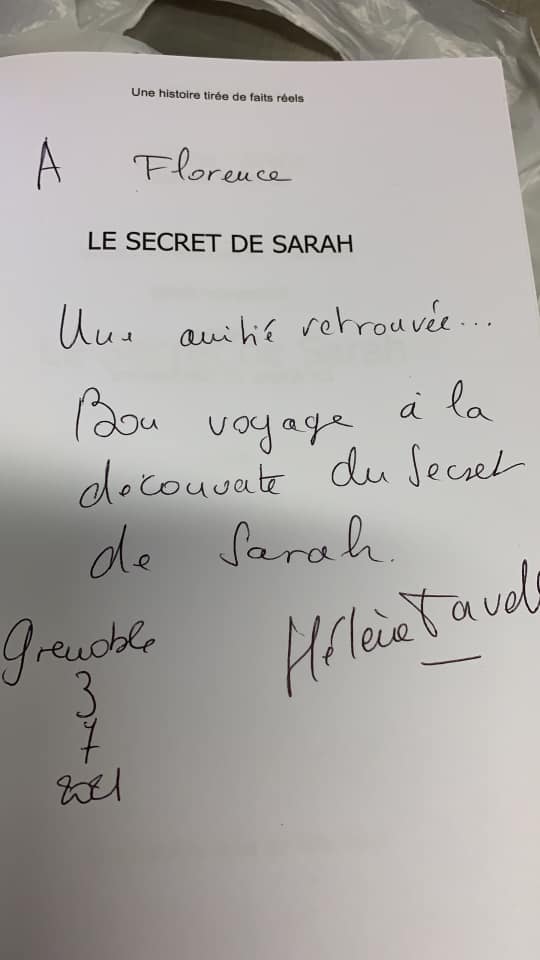 Une histoire tirée de faits réels
A Florence
LE SECRET DE SARAH
Une amitié retrouvée...
Bon voyage à la
découvate du Secret
de Sarah.
Hélène Tavel
Grenoble
3
7
2021